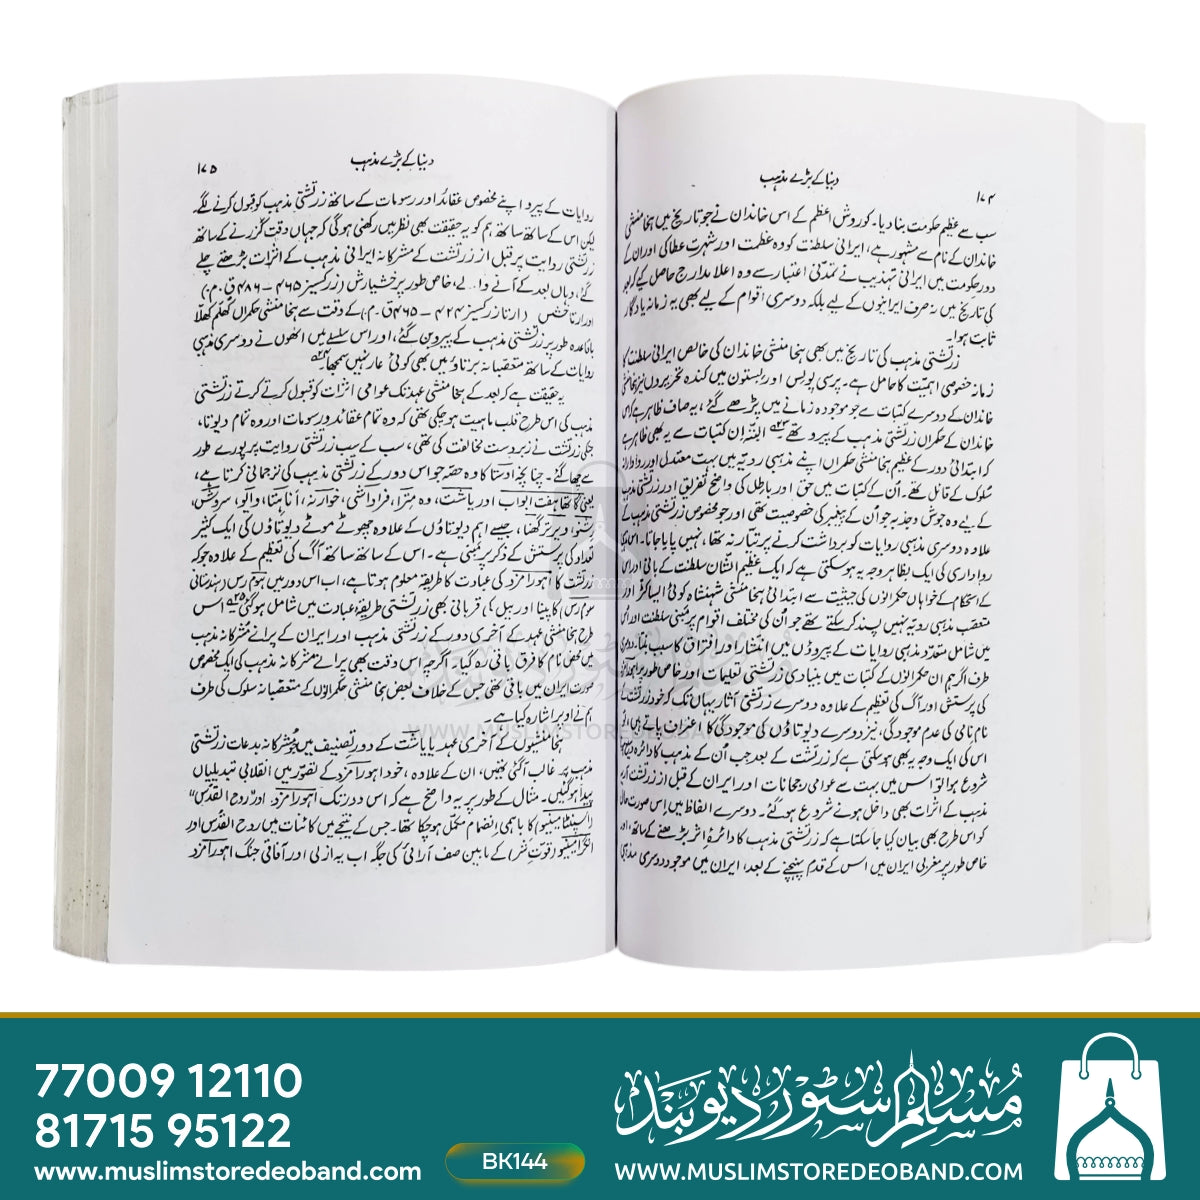 دنیا کے بڑے مذہب
۱۷۴
سب سے عظیم حکومت بنا دیا۔ کوروش اعظم کے اس خاندان نے جو تاریخ میں ہخامنشی
خاندان کے نام سے مشہور ہے، ایرانی سلطنت کو وہ عظمت اور شہرت عطا کی اور ان کے
دور حکومت میں ایرانی تہذیب نے تمدنی اعتبار سے وہ اعلا مدارج حاصل کیے کہ
کی تاریخ میں نہ صرف ایرانیوں کے لیے بلکہ دوسری اقوام کے لیے بھی یہ زمانہ یادگار
ثابت ہوا۔
زرتشتی مذہب کی تاریخ میں بھی ہخامنشی خاندان کی خالص ایرانی سلطنت کا
زمانہ خصوصی اہمیت کا حامل ہے۔ پرسی پولس اور بستون میں کندہ تحریروں نیز ہخامنشی
خاندان کے دوسرے کتبات سے جو موجودہ زمانے میں پڑھے گئے، یہ صاف ظاہر ہے کہ اس
خاندان کے حکمراں زرتشتی مذہب کے پیرو تھے۔ البتہ ان کتبات سے یہ بھی ظاہر ہے
کہ ابتدائی دور کے عظیم ہخامنشی حکمراں اپنے مذہبی رویہ میں بہت معتدل اور روادارانہ
سلوک کے قائل تھے۔ اُن کے کتبات میں حق اور باطل کی واضح تفریق اور زرتشتی مذہب
کے لیے وہ جوش و جذبہ جو اُن کے پیغمبر کی خصوصیت تھی اور جو مخصوص زرتشتی مذہب کے
علاوہ دوسری مذہبی روایات کو برداشت کرنے پر تیار نہ تھا، نہیں پایا جاتا۔ اس
رواداری کی ایک بظاہر وجہ یہ ہوسکتی ہے کہ ایک عظیم الشان سلطنت کے بانی اور اس
کے استحکام کے خواہاں حکمرانوں کی حیثیت سے ابتدائی ہخامنشی شہنشاہ کوئی ایسا کٹر اور
متعصب مذہبی رویہ نہیں پسند کر سکتے تھے جو اُن کی مختلف اقوام پر مبنی سلطنت اور اس
میں شامل متعدد مذہبی روایات کے پیروؤں میں انتشار اور افتراق کا سبب بنتا۔ دوسری
طرف اگرچہ ان حکمرانوں کے کتبات میں بنیادی زرتشتی تعلیمات اور خاص طور پر اہورامزد
کی پرستش اور آگ کی تعظیم کے علاوہ دوسرے زرتشتی آثار یہاں تک کہ خود زرتشت کے
نام نامی کی عدم موجودگی، نیز دوسرے دیوتاؤں کی موجودگی کا اعتراف پاتے ہیں، تو
اس کی ایک وجہ یہ بھی ہوسکتی ہے کہ زرتشت کے بعد جب اُن کے مذہب کا دائرہ وسیع
شروع ہوا تو اس میں بہت سے عوامی رجحانات اور ایران کے قبل از زرتشت آریہ
مذہب کے اثرات بھی داخل ہونے شروع ہوگئے۔ دوسرے الفاظ میں اس صورت حال
کو اس طرح بھی بیان کیا جاسکتا ہے کہ زرتشتی مذہب کا دائرۂ اثر بڑھنے کے ساتھ، اور
خاص طور پر مغربی ایران میں اس کے قدم پہنچنے کے بعد، ایران میں موجود دوسری مذہبی
دنیا کے بڑے مذہب
۱۷۵
روایات کے پیرو اپنے مخصوص عقائد اور رسومات کے ساتھ زرتشتی مذہب کو قبول کرنے لگے۔
لیکن اس کے ساتھ ساتھ ہم کو یہ حقیقت بھی نظر میں رکھنی ہوگی کہ جہاں وقت گزرنے کے ساتھ
زرتشتی روایت پر قبل از زرتشت کے مشرکانہ ایرانی مذہب کے اثرات بڑھتے چلے
گئے، وہاں بعد کے آنے والے، خاص طور پر خشیارش (زرکسیز ۴۶۵ – ۴۸۶ ق۔م۔)
اور ارتاخشص دار تازرکسیز ۴۲۴ – ۴۶۵ ق۔م۔) کے وقت سے ہخامنشی حکمراں کھلم کھلا
باقاعدہ طور پر زرتشتی مذہب کے پیرو بن گئے، اور اس سلسلے میں انھوں نے دوسری مذہبی
روایات کے ساتھ متعصبانہ برتاؤ میں بھی کوئی عار نہیں سمجھا۔
یہ حقیقت ہے کہ بعد کے ہخامنشی عہد تک عوامی اثرات کو قبول کرتے کرتے زرتشتی
مذہب کی اس طرح قلب ماہیت ہوچکی تھی کہ وہ تمام عقائد و رسومات اور وہ تمام دیوتا،
جنکی زرتشت نے زبردست مخالفت کی تھی، سب کے سب زرتشتی روایت پر پورے طور
سے چھا گئے۔ چنانچہ اوستا کا وہ حصّہ جو اس دور کے زرتشتی مذہب کی ترجمانی کرتا ہے،
یعنی گاتھا ہفت ابواب اور یاشت، وہ مترا، فراواشی، خوارنہ، اناہتا، واتو، سروش،
رشنو، ویریترگھنا، جیسے اہم دیوتاؤں کے علاوہ چھوٹے موٹے دیوتاؤں کی ایک کثیر
تعداد کی پرستش کے ذکر پر مبنی ہے۔ اس کے ساتھ ساتھ آگ کی تعظیم کے علاوہ جو کہ
زرتشت کا اہورا مزد کی عبادت کا طریقہ معلوم ہوتا ہے، اب اس دور میں ہوم رس (ہندستانی
سوم رس) کا پینا اور بیل کی قربانی بھی زرتشتی طریقۂ عبادت میں شامل ہوگئی۔ اس
طرح ہخامنشی عہد کے آخری دور کے زرتشتی مذہب اور ایران کے پرانے مشرکانہ مذہب
میں محض نام کا فرق باقی رہ گیا۔ اگرچہ اس وقت بھی پرانے مشرکانہ مذہب کی ایک مخصوص
صورت ایران میں باقی تھی جس کے خلاف بعض ہخامنشی حکمرانوں کے متعصبانہ سلوک کی طرف
ہم نے اوپر اشارہ کیا ہے۔
ہخامنشیوں کے آخری عہد یا یاشت کے دور تصنیف میں جو مشرکانہ بدعات زرتشتی
مذہب پر غالب آگئی تھیں، ان کے علاوہ، خود اہورا مزد کے تصور میں انقلابی تبدیلیاں
پیدا ہوگئیں۔ مثال کے طور پر یہ واضح ہے کہ اس دور تک اہورا مزد اور "روح القدس"
(اسپنٹا مینیو) کا باہمی انضمام مکمل ہوچکا تھا۔ جس کے نتیجے میں کائنات میں روح القدس اور
انگرا مینیو (قوت شر) کے مابین صف آرائی کی جگہ اب یہ ازلی اور آفاقی جنگ اہورا مزد
WWW.MUSLIMSTOREDEOBAND.COM
77009 12110
81715 95122
www.muslimstoredeoband.com
BK144
مسلم سٹور دیوبند
WWW.MUSLIMSTOREDEOBAND.COM